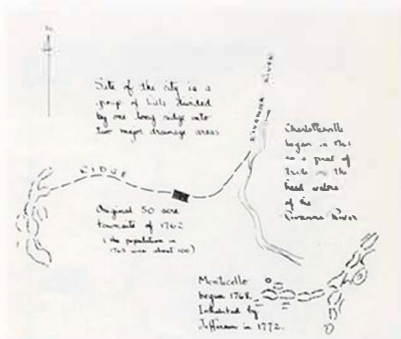 Site of the city is a
group of hills divided
by one long ridge into
two major drainage areas
RIVANNA RIVER
Charlottesville
began in 1762
as a
head
of the
Rivanna River
RIDGE
Original 50 acre
townsite of 1762
(the population in
1762 was about 100)
Monticello
begun 1768.
Inhabited by
Jefferson in 1772.